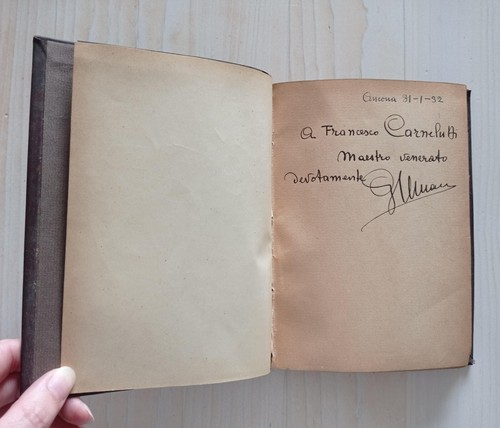 Ancona 31-1-32
A Francesco Carnelutti
Maestro venerato
devotamente